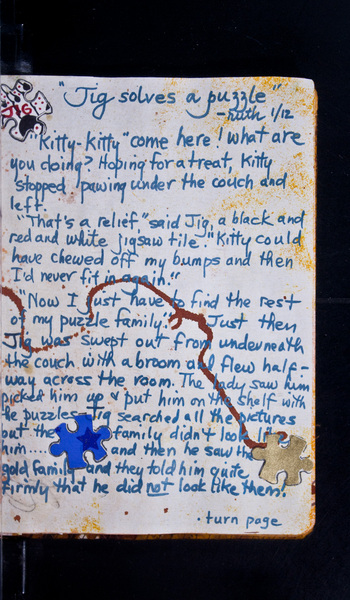 JIG
"Jig solves a puzzle"
-Ruth 1/12
"Kitty-Kitty" come here! What are
you doing? Hoping for a treat, Kitty
stopped pawing under the couch and
left.
"That's a relief," said Jig, a black and
red and white jigsaw tile. "Kitty could
have chewed off my bumps and then
I'd never fit in again."
"Now I just have to find the rest
of my puzzle family." Just then
Jig was swept out from underneath
the couch with a broom and flew half-
way across the room. The lady saw him
picked him up & put him on the shelf with
he puzzles. Jig searched all the pictures
but the family didn't look
him.... and then he saw the
gold family and they told him quite
firmly that he did not look like them.
· turn page